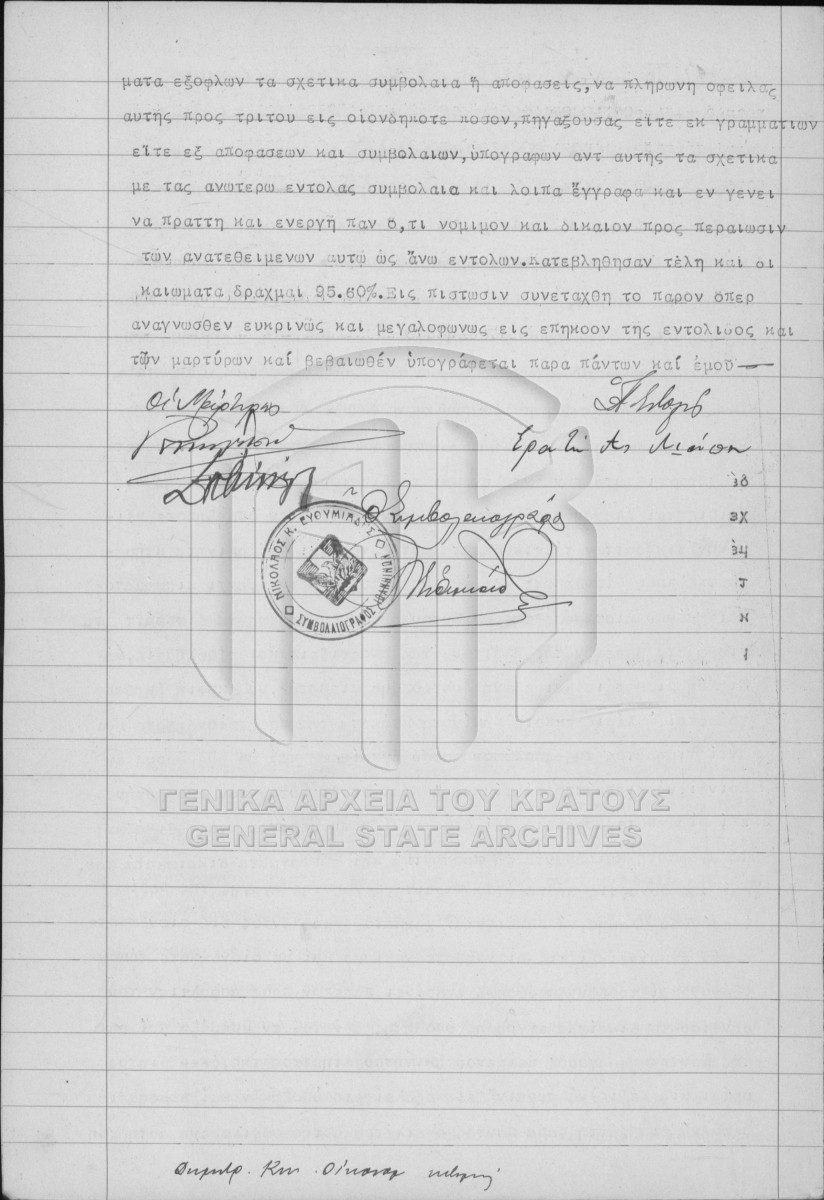 ματα εξοφλων τα σχετικα συμβολαια ἤ αποφασεις,να πληρωνη οφειλας
αυτης προς τριτου εις οἱονδηποτε ποσον,πηγαζουσας εἴτε εκ γραμματιων
εἴτε εξ αποφασεων και συμβολαιων,ὑπογραφων αντ αυτῆς τα σχετικα
με τας ανωτερω εντολας συμβολαια και λοιπα ἔγγραφα και εν γενει
να πραττη και ενεργῆ παν ὅ,τι νομιμον και δικαιον προς περαιωσιν
τῶν ανατεθειμενων αυτῶ ὡς ἄνω εντολων.Κατεβληθησαν τέλη και δι
καιωματα δραχμαι 95.60%.Εις πιστωσιν συνεταχθη το παρον ὅπερ
αναγνωσθεν ευκρινῶς και μεγαλοφωνως εις επηκοον τῆς εντολιδος και
τῶν μαρτύρων καί βεβαιωθέν ὑπογράφεται παρα πάντων καί ἐμοῦ—
Οἱ Μάρτυρες
Ὁ Συμβολαιογράφος
ΝΙΚΟΛΑΟΣ Κ. ΕΥΘΥΜΙΑΔΗΣ
ΣΥΜΒΟΛΑΙΟΓΡΑΦΟΣ
ΓΕΝΙΚΑ ΑΡΧΕΙΑ ΤΟΥ ΚΡΑΤΟΥΣ
GENERAL STATE ARCHIVES